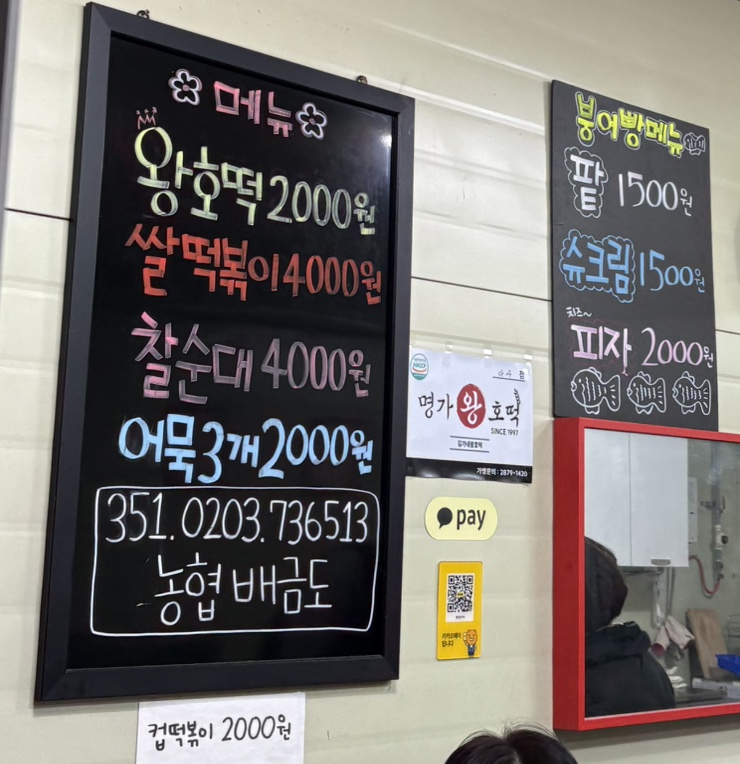 메뉴
왕호떡 2000원
쌀떡볶이 4000원
찰순대 4000원
어묵 3개 2000원
351.0203.736513
농협 배금도
컵떡볶이 2000원
명가왕호떡
SINCE 1997
가맹문의 : 2879-1420
pay
붕어빵메뉴
팥 1500원
슈크림 1500원
치즈~
피자 2000원